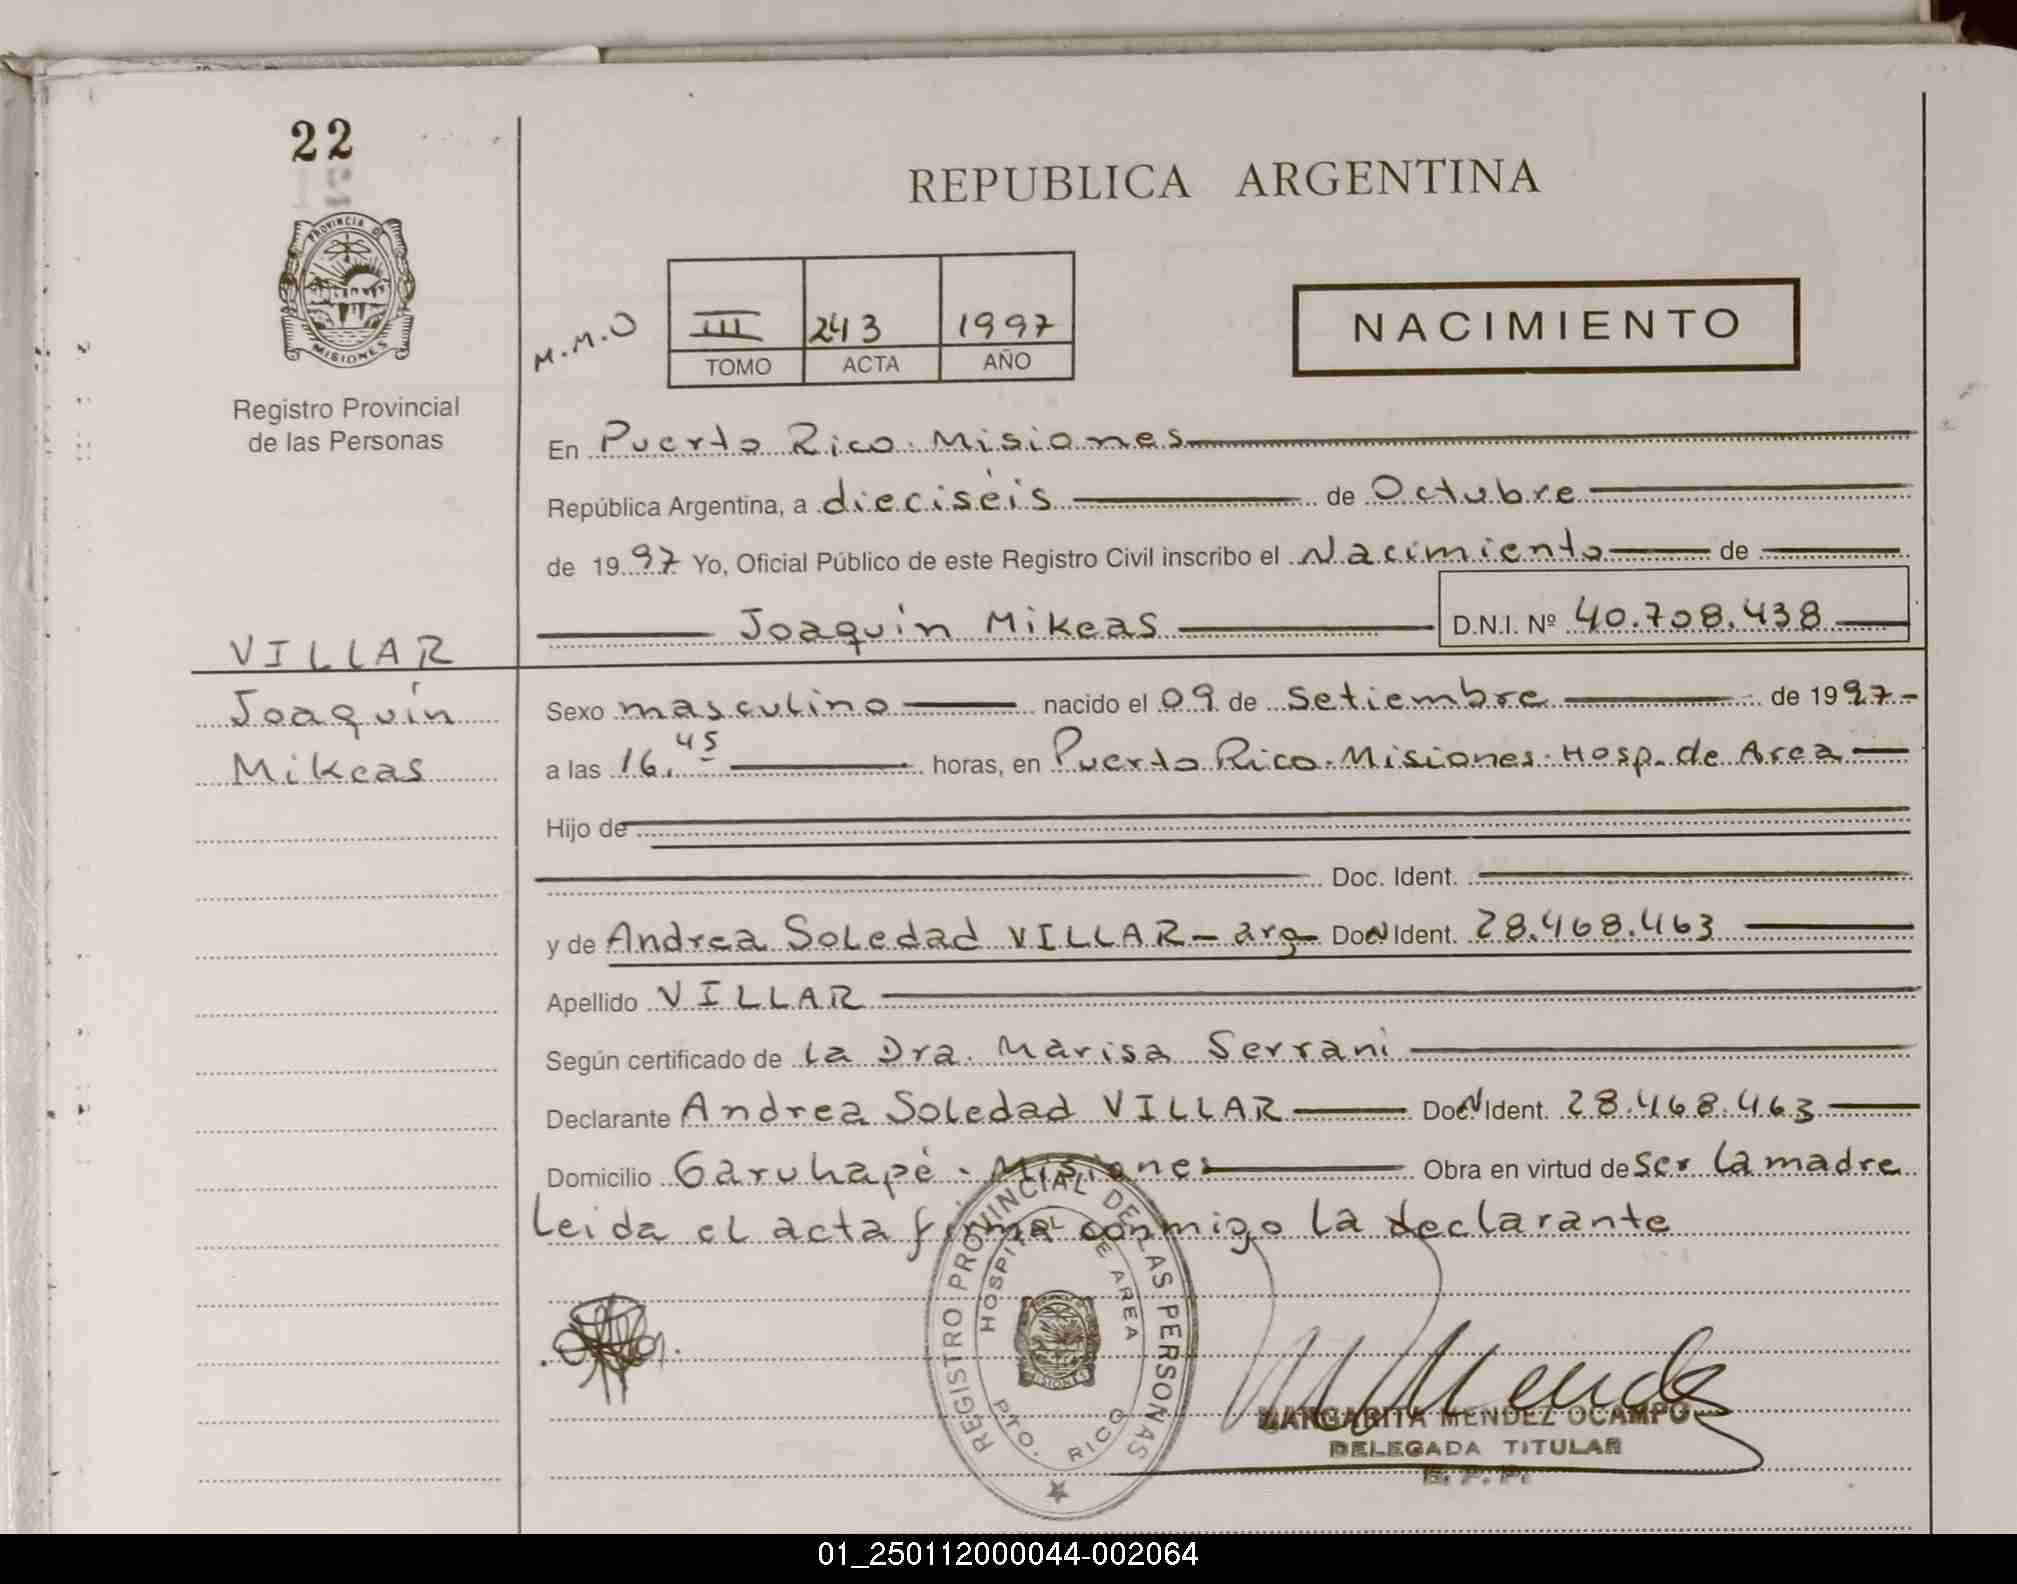 22
PROVINCIA DE
MISIONES
Registro Provincial
de las Personas
VILLAR
Joaquín
Mikeas
REPUBLICA ARGENTINA
M.M.O
III 243 1997
TOMO ACTA AÑO
NACIMIENTO
En Puerto Rico. Misiones
República Argentina, a dieciséis de Octubre
de 1997 Yo, Oficial Público de este Registro Civil inscribo el Nacimiento de
Joaquín Mikeas D.N.I. Nº 40.708.438
Sexo masculino nacido el 09 de Setiembre de 1997-
a las 16.45 horas, en Puerto Rico. Misiones. Hosp. de Area
Hijo de
Doc. Ident.
y de Andrea Soledad VILLAR - arg Doc Ident. 28.468.463
Apellido VILLAR
Según certificado de la Dra. Marisa Serrani
Declarante Andrea Soledad VILLAR Doc Ident. 28.468.463
Domicilio Garuhapé. Misiones Obra en virtud de ser la madre
Leida el acta firma conmigo la declarante
REGISTRO PROVINCIAL DE LAS PERSONAS
HOSPITAL DE AREA
PTO. RICO
MISIONES
M Mendez
MARGARITA MENDEZ OCAMPO
DELEGADA TITULAR
R. P. P.
01_250112000044-002064